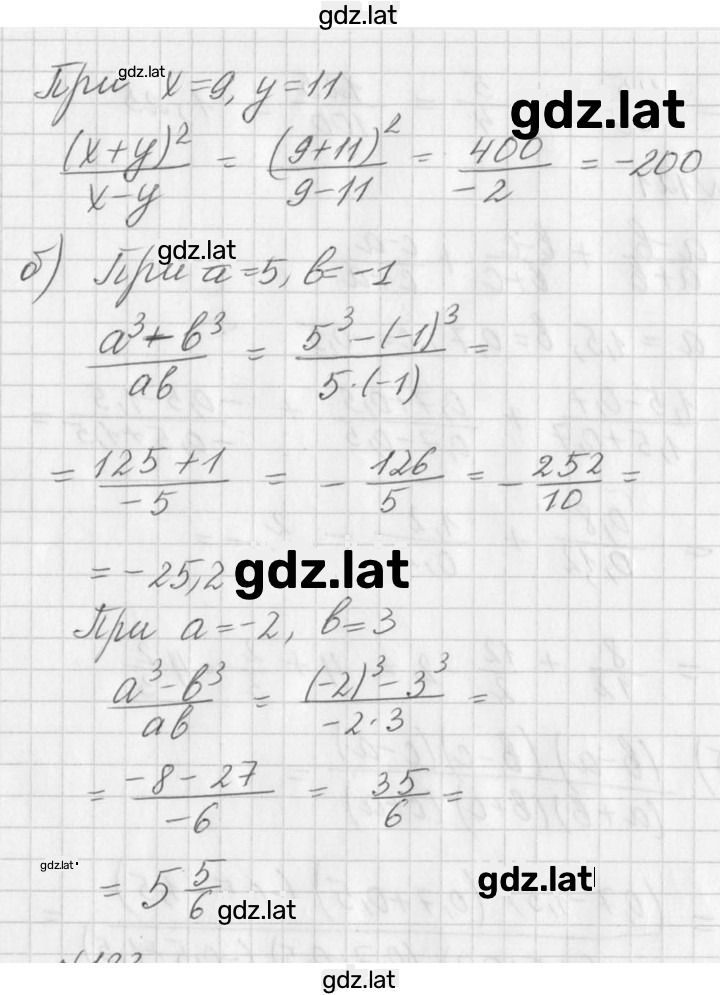 gdz.lat
При gdz.lat x=9, y=11
gdz.lat
(x+y)²/(x-y) = (9+11)²/(9-11) = 400/-2 = -200
б) При a=5, b=-1
gdz.lat
(a³-b³)/(ab) = (5³-(-1)³)/(5·(-1)) =
= (125+1)/-5 = -126/5 = -252/10 =
= -25,2 gdz.lat
При a=-2, b=3
(a³-b³)/(ab) = ((-2)³-3³)/(-2·3) =
= (-8-27)/-6 = 35/6 =
gdz.lat
= 5 5/6
gdz.lat
gdz.lat
gdz.lat